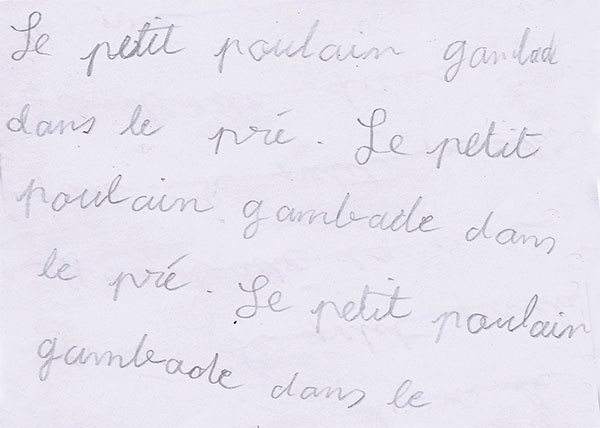 Le petit poulain gambade
dans le pré. Le petit
poulain gambade dans
le pré. Le petit poulain
gambade dans le